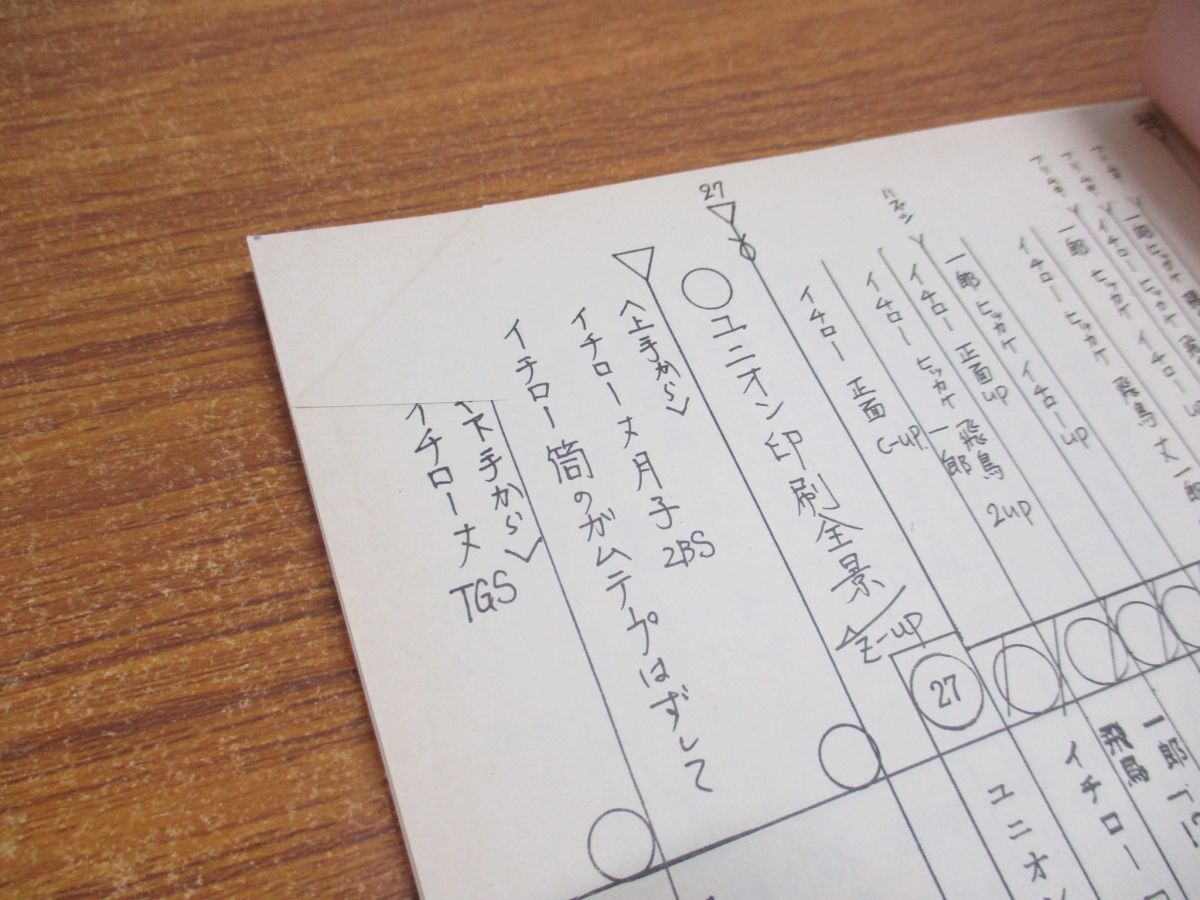 アリモチ 一郎 ヒッカケ
アリモチ イチロー ヒッカケ
アリモチ 一郎 ヒッカケ イチロー U
イチロー ヒッカケ 飛鳥 丈 一郎
一郎 ヒッカケ イチローup
イチロー 正面up
イチロー ヒッカケ 一郎 飛鳥 2up
イチロー 正面 C-up.
27
ユニオン印刷全景 Z-up
〈上手から〉
イチロー丈月子 2BS
イチロー筒のガムテプはずして
〈下手から〉
イチロー丈 TGS
27
一郎
飛鳥
イチロー
ユニオン